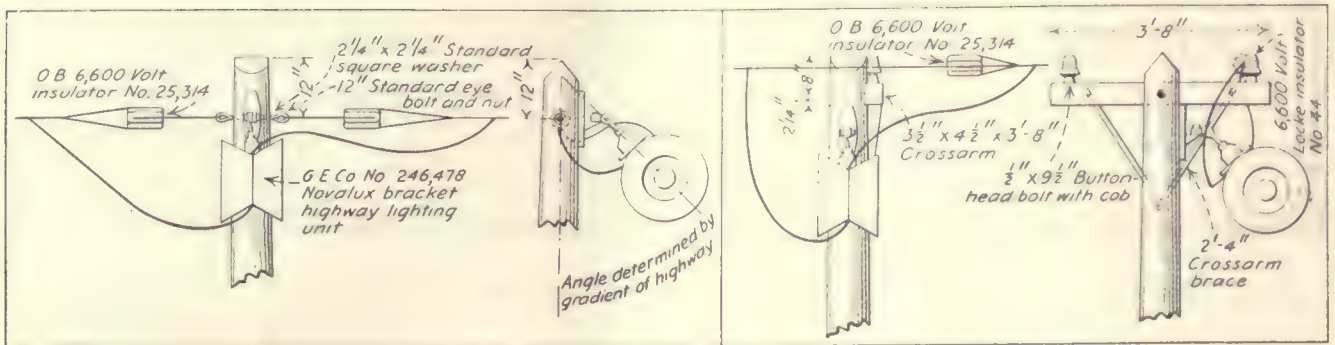 O B 6,600 Volt
insulator No. 25,314
2 1/4" x 2 1/4" Standard
square washer
12" Standard eye
bolt and nut
12"
12"
G E Co No 246,478
Novalux bracket
highway lighting
unit
Angle determined by
gradient of highway
O B 6,600 Volt
insulator No 25,314
8"
2'4"
3 1/2" x 4 1/2" x 3'-8"
Crossarm
1/2" x 9 1/2" Button-
head bolt with cob
3'-8"
6,600 Volt
Locke insulator
No 44
2'-4"
Crossarm
brace